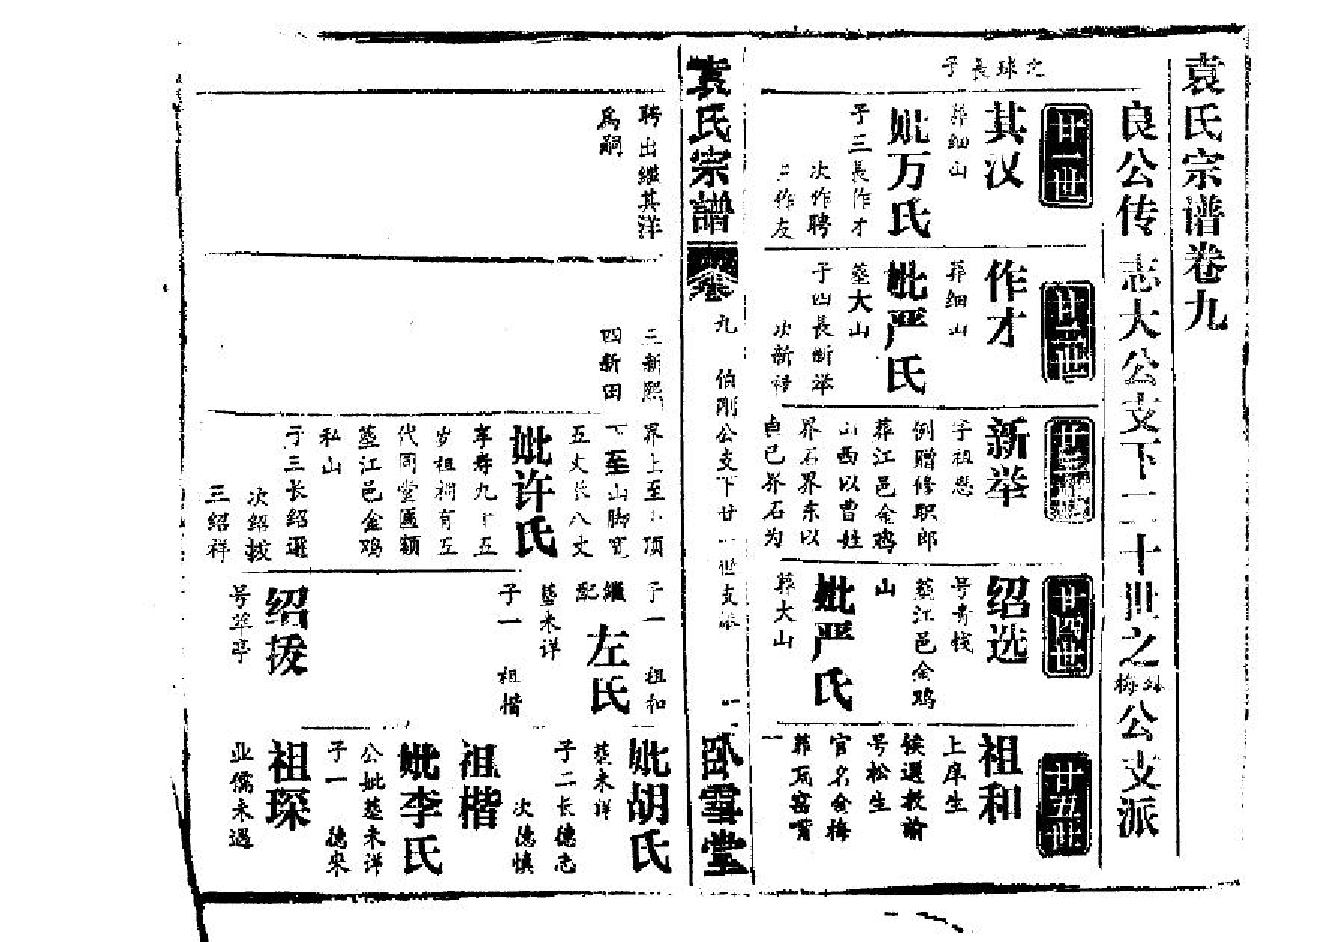 袁氏宗谱卷九
良公传志大公支下二十世之 梅 公支派
之球長子
廿一世
其汉
葬细山
妣万氏
子三長作才
次作聘
三作友
聘出继其洋
為嗣
廿二世
作才
葬细山
妣严氏
墓大山
子四長新举
次新禧
三新熙
四新田
廿三世
新举
字祖懋
例赠修职郎
葬江邑金鸡
山西以曹姓
界石界东以
自己界石为
界上至山顶
下至山脚宽
五丈长八丈
妣许氏
享寿九十五
岁祖祠有五
代同堂匾额
墓江邑金鸡
私山
子三长绍選
次绍拔
三绍祥
廿四世
绍选
号青钱
墓江邑金鸡
山
妣严氏
葬大山
子一 祖和
继配
左氏
墓未详
子一 祖楷
绍拔
号萃亭
廿五世
祖和
上庠生
候選教諭
号松生
官名金梅
葬瓦窑背
妣胡氏
葬未详
子二长德志
次德慎
祖楷
妣李氏
公妣墓未详
子一 德宋
祖琛
业儒未遇
袁氏宗谱
卷九
伯刚公支下廿一世支派
一
卧雪堂